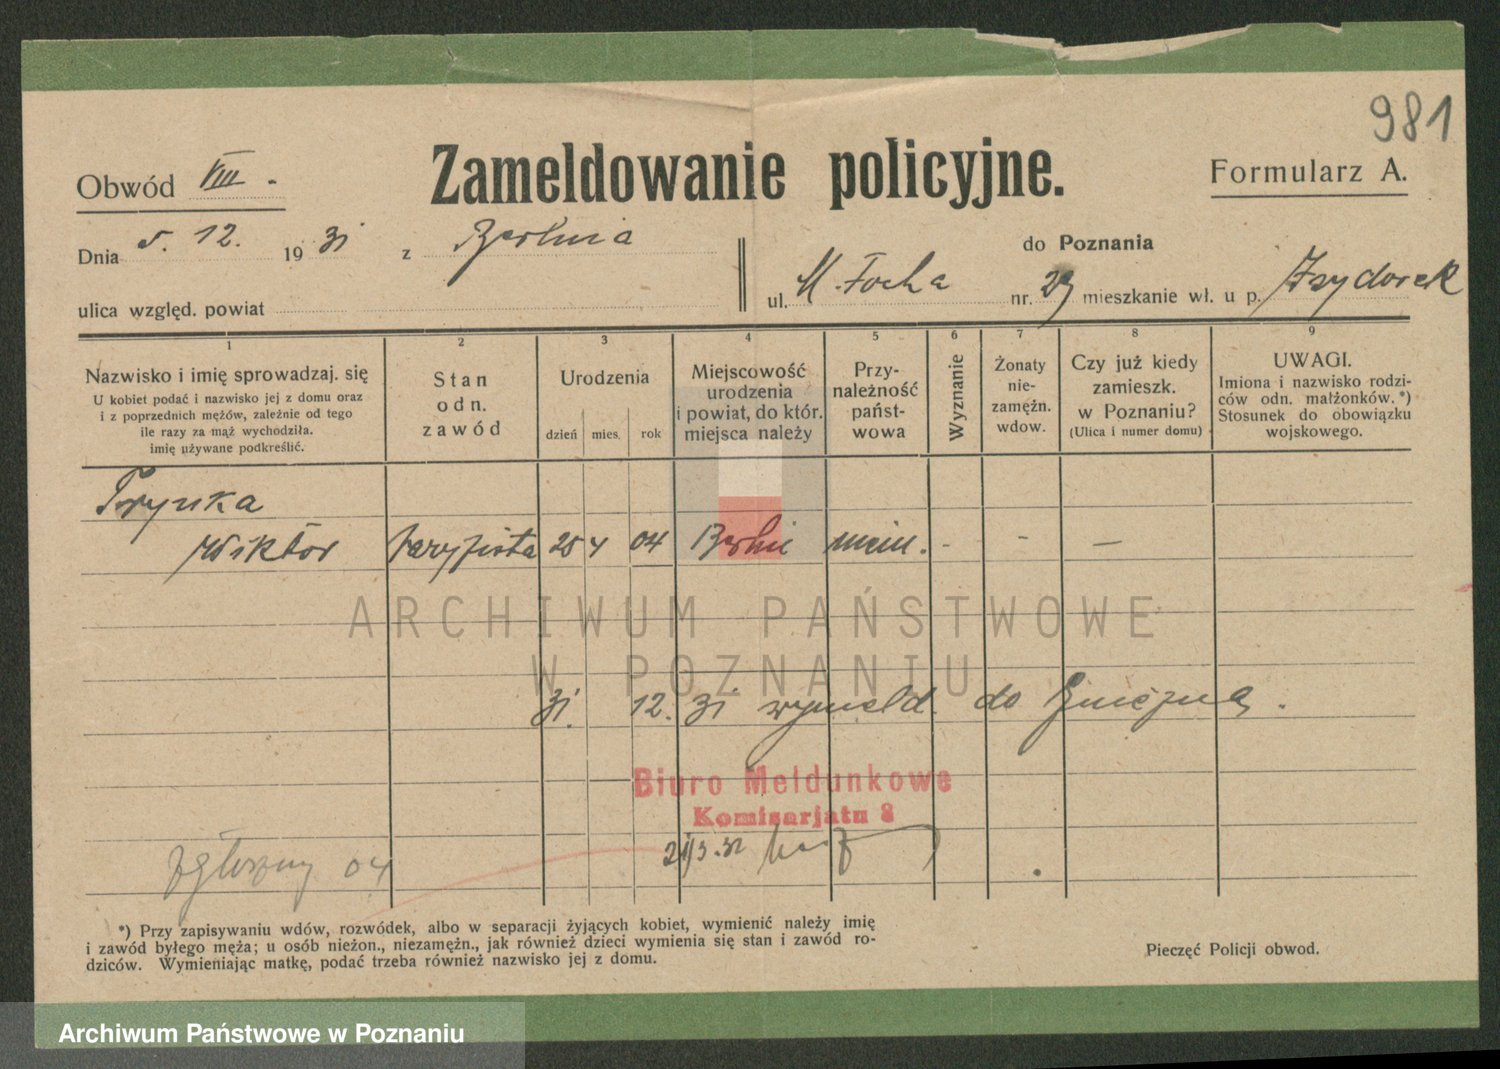 981
Obwód VIII.
Zameldowanie policyjne.
Formularz A.
Dnia 5. 12. 1931 z Berlina
do Poznania
ulica względ. powiat
ul. M. Focha nr. 29 mieszkanie wł. u p. Izydorek
1 2 3 4 5 6 7 8 9
Nazwisko i imię sprowadzaj. się
U kobiet podać i nazwisko jej z domu oraz
i z poprzednich mężów, zależnie od tego
ile razy za mąż wychodziła.
imię używane podkreślić.
Stan
odn.
zawód
Urodzenia
dzień mies. rok
Miejscowość
urodzenia
i powiat, do któr.
miejsca należy
Przy-
należność
państ-
wowa
Wyznanie
Żonaty
nie-
zamężn.
wdow.
Czy już kiedy
zamieszk.
w Poznaniu?
(Ulica i numer domu)
UWAGI.
Imiona i nazwisko rodzi-
ców odn. małżonków.*)
Stosunek do obowiązku
wojskowego.
Prynka
Wiktór 25 4 04 Berlin niem. - - -
ARCHIWUM PAŃSTWOWE
W POZNANIU
31. 12. 31 wymeld. do Gniezna.
Biuro Meldunkowe
Komisarjatu 8
21/3.32
zgłoszony 04
*) Przy zapisywaniu wdów, rozwódek, albo w separacji żyjących kobiet, wymienić należy imię
i zawód byłego męża; u osób nieżon., niezamężn., jak również dzieci wymienia się stan i zawód ro-
dziców. Wymieniając matkę, podać trzeba również nazwisko jej z domu.
Pieczęć Policji obwod.
Archiwum Państwowe w Poznaniu